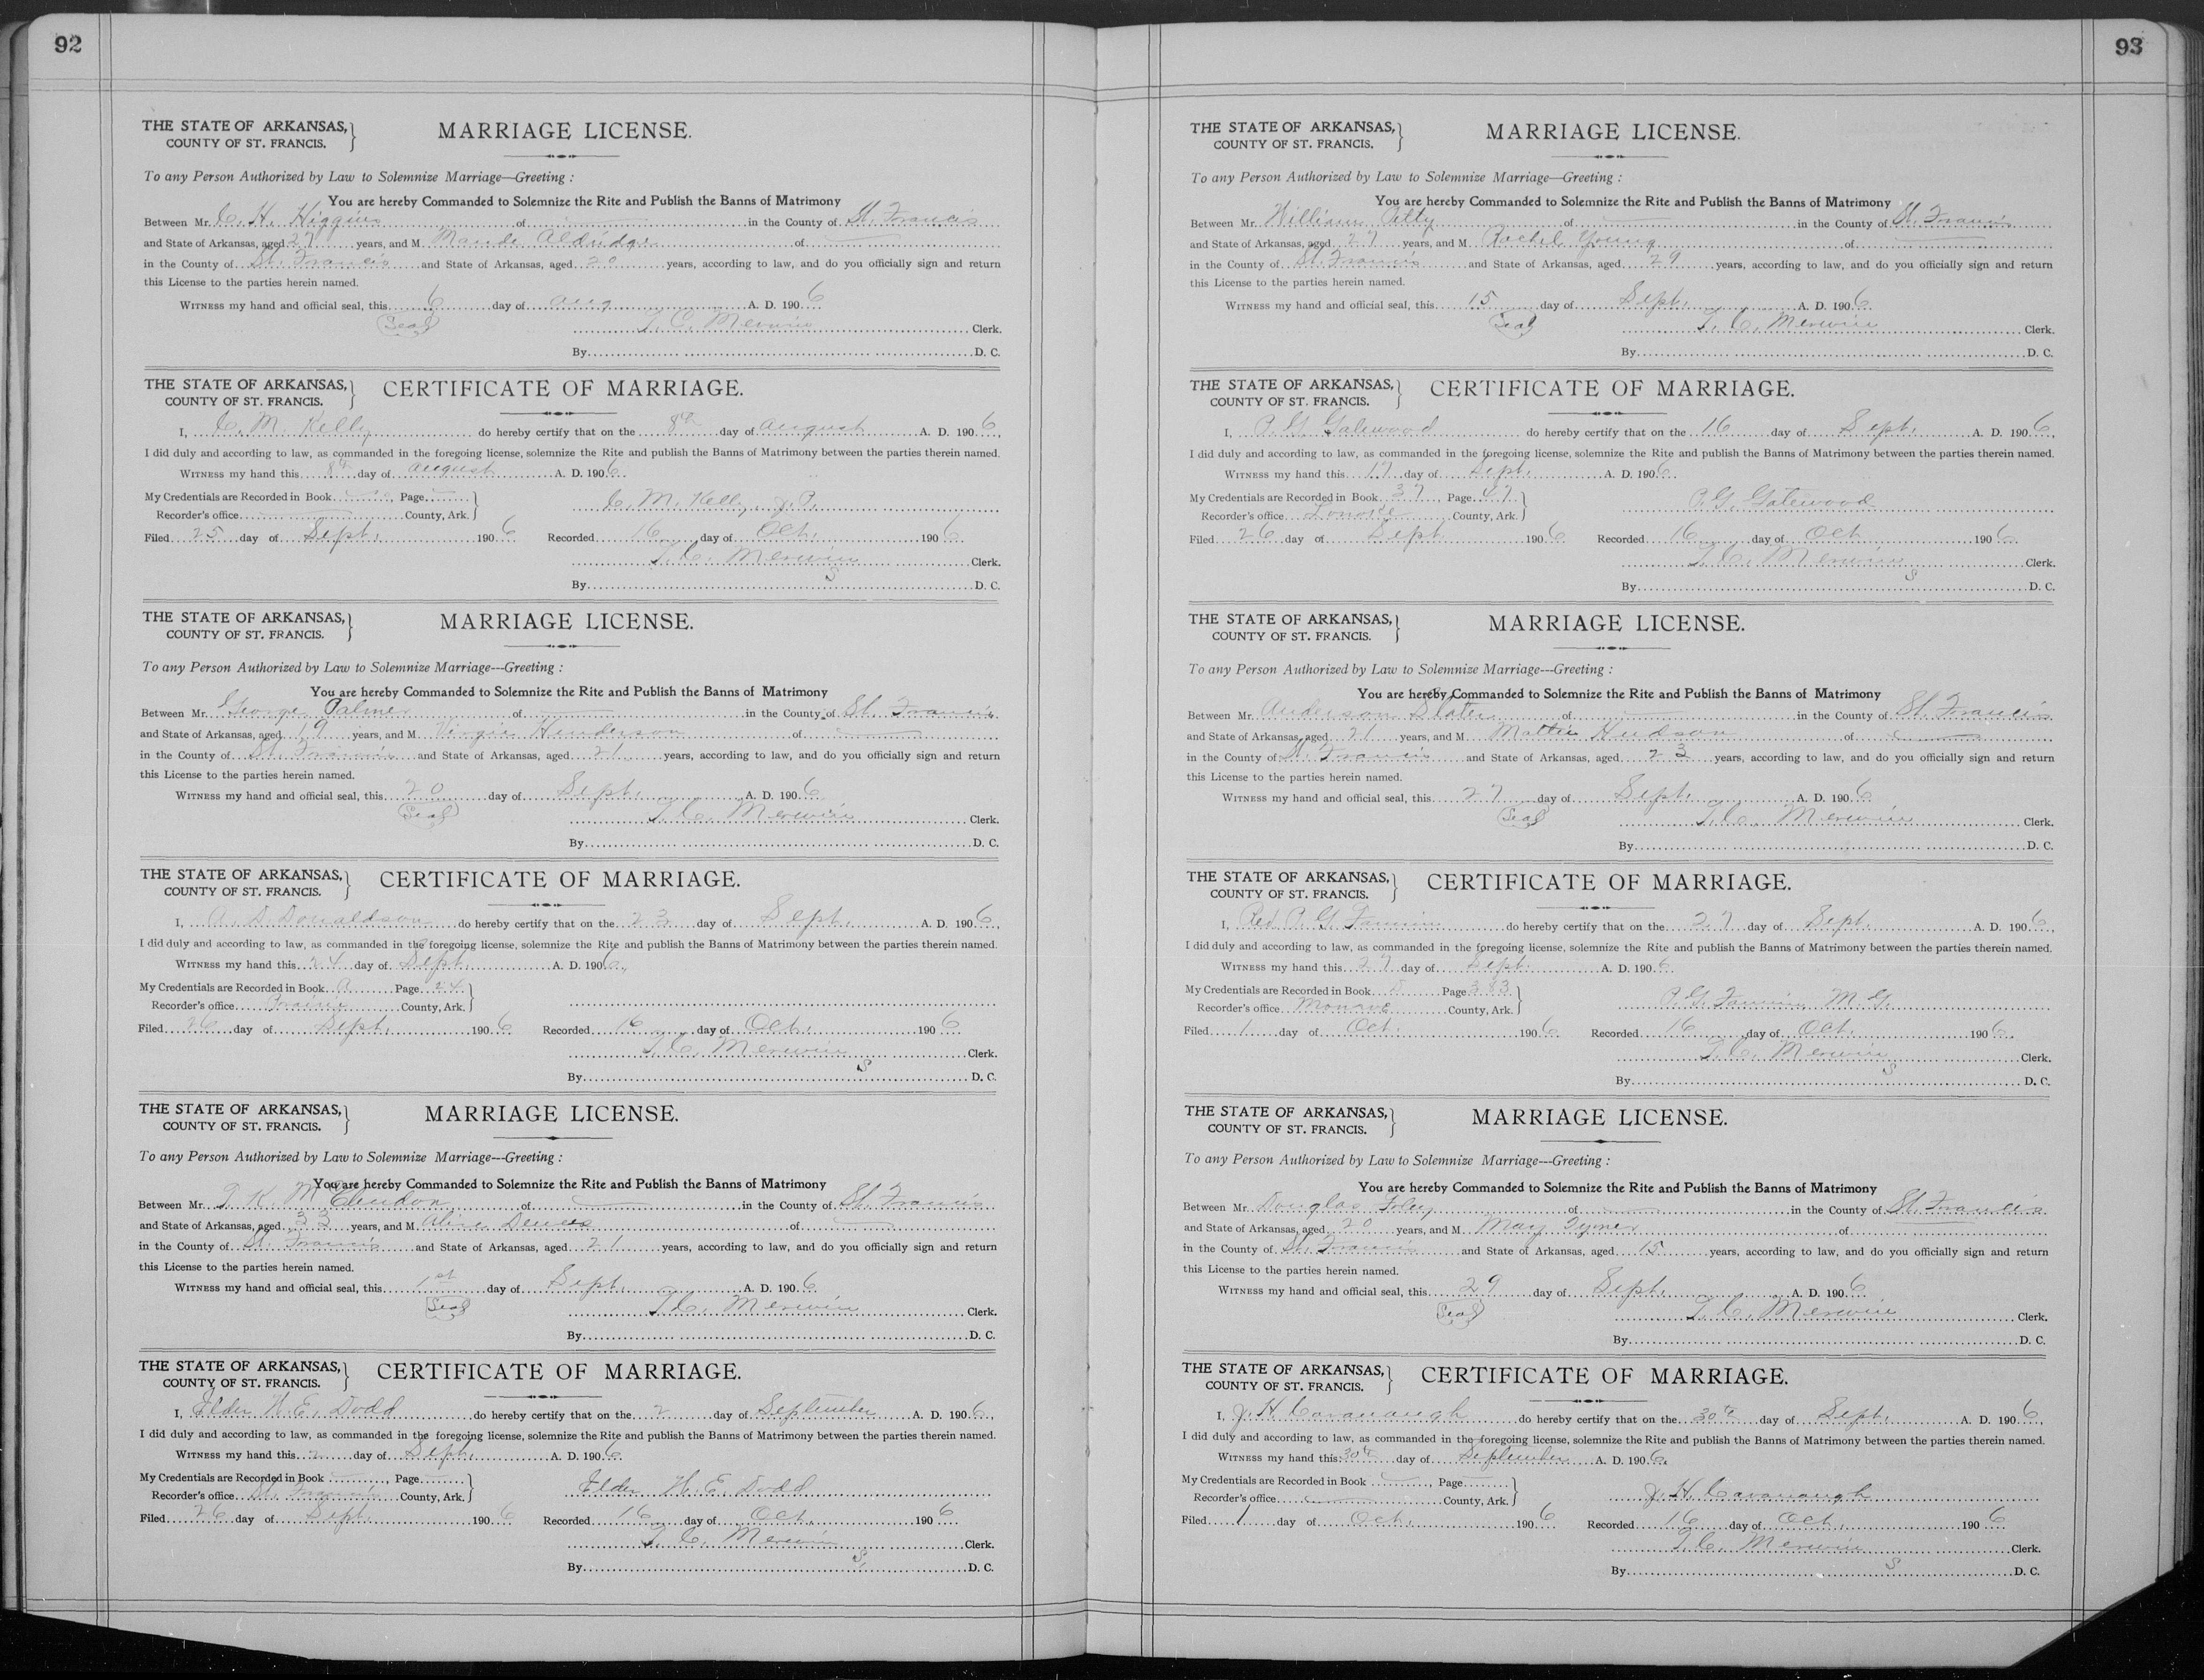 92
THE STATE OF ARKANSAS,
COUNTY OF ST. FRANCIS.
MARRIAGE LICENSE.
To any Person Authorized by Law to Solemnize Marriage—Greeting :
You are hereby Commanded to Solemnize the Rite and Publish the Banns of Matrimony
Between Mr. C. H. Higgins of in the County of St. Francis
and State of Arkansas, aged 27 years, and M Maude Aldridge of
in the County of St. Francis and State of Arkansas, aged 20 years, according to law, and do you officially sign and return
this License to the parties herein named.
WITNESS my hand and official seal, this 6 day of Aug A. D. 190 6
Seal T. C. Merwin Clerk.
By D. C.
THE STATE OF ARKANSAS,
COUNTY OF ST. FRANCIS.
CERTIFICATE OF MARRIAGE.
I, C. M. Kelly do hereby certify that on the 8th day of August A. D. 190 6,
I did duly and according to law, as commanded in the foregoing license, solemnize the Rite and publish the Banns of Matrimony between the parties therein named.
WITNESS my hand this 8th day of August A. D. 190 6.
My Credentials are Recorded in Book , Page
Recorder's office County, Ark.
C. M. Kelly, J. P.
Filed 25 day of Sept. 190 6 Recorded 16 day of Oct. 190 6
T. C. Merwin Clerk.
By S D. C.
THE STATE OF ARKANSAS,
COUNTY OF ST. FRANCIS.
MARRIAGE LICENSE.
To any Person Authorized by Law to Solemnize Marriage---Greeting :
You are hereby Commanded to Solemnize the Rite and Publish the Banns of Matrimony
Between Mr. George Palmer of in the County of St. Francis
and State of Arkansas, aged 19 years, and M Virgie Henderson of
in the County of St. Francis and State of Arkansas, aged 21 years, according to law, and do you officially sign and return
this License to the parties herein named.
WITNESS my hand and official seal, this 20 day of Sept. A. D. 190 6
Seal T. C. Merwin Clerk.
By D. C.
THE STATE OF ARKANSAS,
COUNTY OF ST. FRANCIS.
CERTIFICATE OF MARRIAGE.
I, A. D. Donaldson do hereby certify that on the 23 day of Sept. A. D. 190 6,
I did duly and according to law, as commanded in the foregoing license, solemnize the Rite and publish the Banns of Matrimony between the parties therein named.
WITNESS my hand this 24 day of Sept. A. D. 190 6.
My Credentials are Recorded in Book A Page 24
Recorder's office Prairie County, Ark.
Filed 26 day of Sept. 190 6 Recorded 16 day of Oct. 190 6
T. C. Merwin Clerk.
By S D. C.
THE STATE OF ARKANSAS,
COUNTY OF ST. FRANCIS.
MARRIAGE LICENSE.
To any Person Authorized by Law to Solemnize Marriage---Greeting :
You are hereby Commanded to Solemnize the Rite and Publish the Banns of Matrimony
Between Mr. K. McClendon of in the County of St. Francis
and State of Arkansas, aged 33 years, and M Alice of
in the County of St. Francis and State of Arkansas, aged 21 years, according to law, and do you officially sign and return
this License to the parties herein named.
WITNESS my hand and official seal, this 1st day of Sept. A. D. 190 6
Seal T. C. Merwin Clerk.
By D. C.
THE STATE OF ARKANSAS,
COUNTY OF ST. FRANCIS.
CERTIFICATE OF MARRIAGE.
I, Elder W. E. Dodd do hereby certify that on the 2 day of September A. D. 190 6,
I did duly and according to law, as commanded in the foregoing license, solemnize the Rite and publish the Banns of Matrimony between the parties therein named.
WITNESS my hand this 2 day of Sept. A. D. 190 6.
My Credentials are Recorded in Book , Page
Recorder's office St. Francis County, Ark.
Elder W. E. Dodd
Filed 26 day of Sept. 190 6 Recorded 16 day of Oct. 190 6
T. C. Merwin Clerk.
By S. D. C.
93
THE STATE OF ARKANSAS,
COUNTY OF ST. FRANCIS.
MARRIAGE LICENSE.
To any Person Authorized by Law to Solemnize Marriage—Greeting :
You are hereby Commanded to Solemnize the Rite and Publish the Banns of Matrimony
Between Mr. William Petty of in the County of St. Francis
and State of Arkansas, aged 27 years, and M Rachel Young of
in the County of St. Francis and State of Arkansas, aged 29 years, according to law, and do you officially sign and return
this License to the parties herein named.
WITNESS my hand and official seal, this 15 day of Sept. A. D. 190 6.
Seal T. C. Merwin Clerk.
By D. C.
THE STATE OF ARKANSAS,
COUNTY OF ST. FRANCIS.
CERTIFICATE OF MARRIAGE.
I, P. G. Gatewood do hereby certify that on the 16 day of Sept. A. D. 190 6,
I did duly and according to law, as commanded in the foregoing license, solemnize the Rite and publish the Banns of Matrimony between the parties therein named.
WITNESS my hand this 17 day of Sept. A. D. 190 6.
My Credentials are Recorded in Book 37, Page 47
Recorder's office Lonoke County, Ark.
P. G. Gatewood
Filed 26 day of Sept 190 6 Recorded 16 day of Oct 190 6
T. C. Merwin Clerk.
By S D. C.
THE STATE OF ARKANSAS,
COUNTY OF ST. FRANCIS.
MARRIAGE LICENSE.
To any Person Authorized by Law to Solemnize Marriage---Greeting :
You are hereby Commanded to Solemnize the Rite and Publish the Banns of Matrimony
Between Mr. Anderson Slater of in the County of St. Francis
and State of Arkansas, aged 21 years, and M Mattie Hudson of
in the County of St. Francis and State of Arkansas, aged 23 years, according to law, and do you officially sign and return
this License to the parties herein named.
WITNESS my hand and official seal, this 27 day of Sept. A. D. 190 6
Seal T. C. Merwin Clerk.
By D. C.
THE STATE OF ARKANSAS,
COUNTY OF ST. FRANCIS.
CERTIFICATE OF MARRIAGE.
I, Rev P. G. Fannin do hereby certify that on the 27 day of Sept. A. D. 190 6,
I did duly and according to law, as commanded in the foregoing license, solemnize the Rite and publish the Banns of Matrimony between the parties therein named.
WITNESS my hand this 27 day of Sept. A. D. 190 6.
My Credentials are Recorded in Book Page 383
Recorder's office Monroe County, Ark.
P. G. Fannin, M. G.
Filed 1 day of Oct. 190 6 Recorded 16 day of Oct. 190 6
T. C. Merwin Clerk.
By S D. C.
THE STATE OF ARKANSAS,
COUNTY OF ST. FRANCIS.
MARRIAGE LICENSE.
To any Person Authorized by Law to Solemnize Marriage---Greeting :
You are hereby Commanded to Solemnize the Rite and Publish the Banns of Matrimony
Between Mr. Douglas Foley of in the County of St. Francis
and State of Arkansas, aged 20 years, and M May Tyner of
in the County of St. Francis and State of Arkansas, aged 15 years, according to law, and do you officially sign and return
this License to the parties herein named.
WITNESS my hand and official seal, this 29 day of Sept. A. D. 190 6
Seal T. C. Merwin Clerk.
By D. C.
THE STATE OF ARKANSAS,
COUNTY OF ST. FRANCIS.
CERTIFICATE OF MARRIAGE.
I, J. H. Cavanaugh do hereby certify that on the 30th day of Sept. A. D. 190 6,
I did duly and according to law, as commanded in the foregoing license, solemnize the Rite and publish the Banns of Matrimony between the parties therein named.
WITNESS my hand this 30th day of September A. D. 190 6.
My Credentials are Recorded in Book , Page
Recorder's office County, Ark.
J. H. Cavanaugh
Filed 1 day of Oct. 190 6 Recorded 16 day of Oct. 190 6
T. C. Merwin Clerk.
By S D. C.